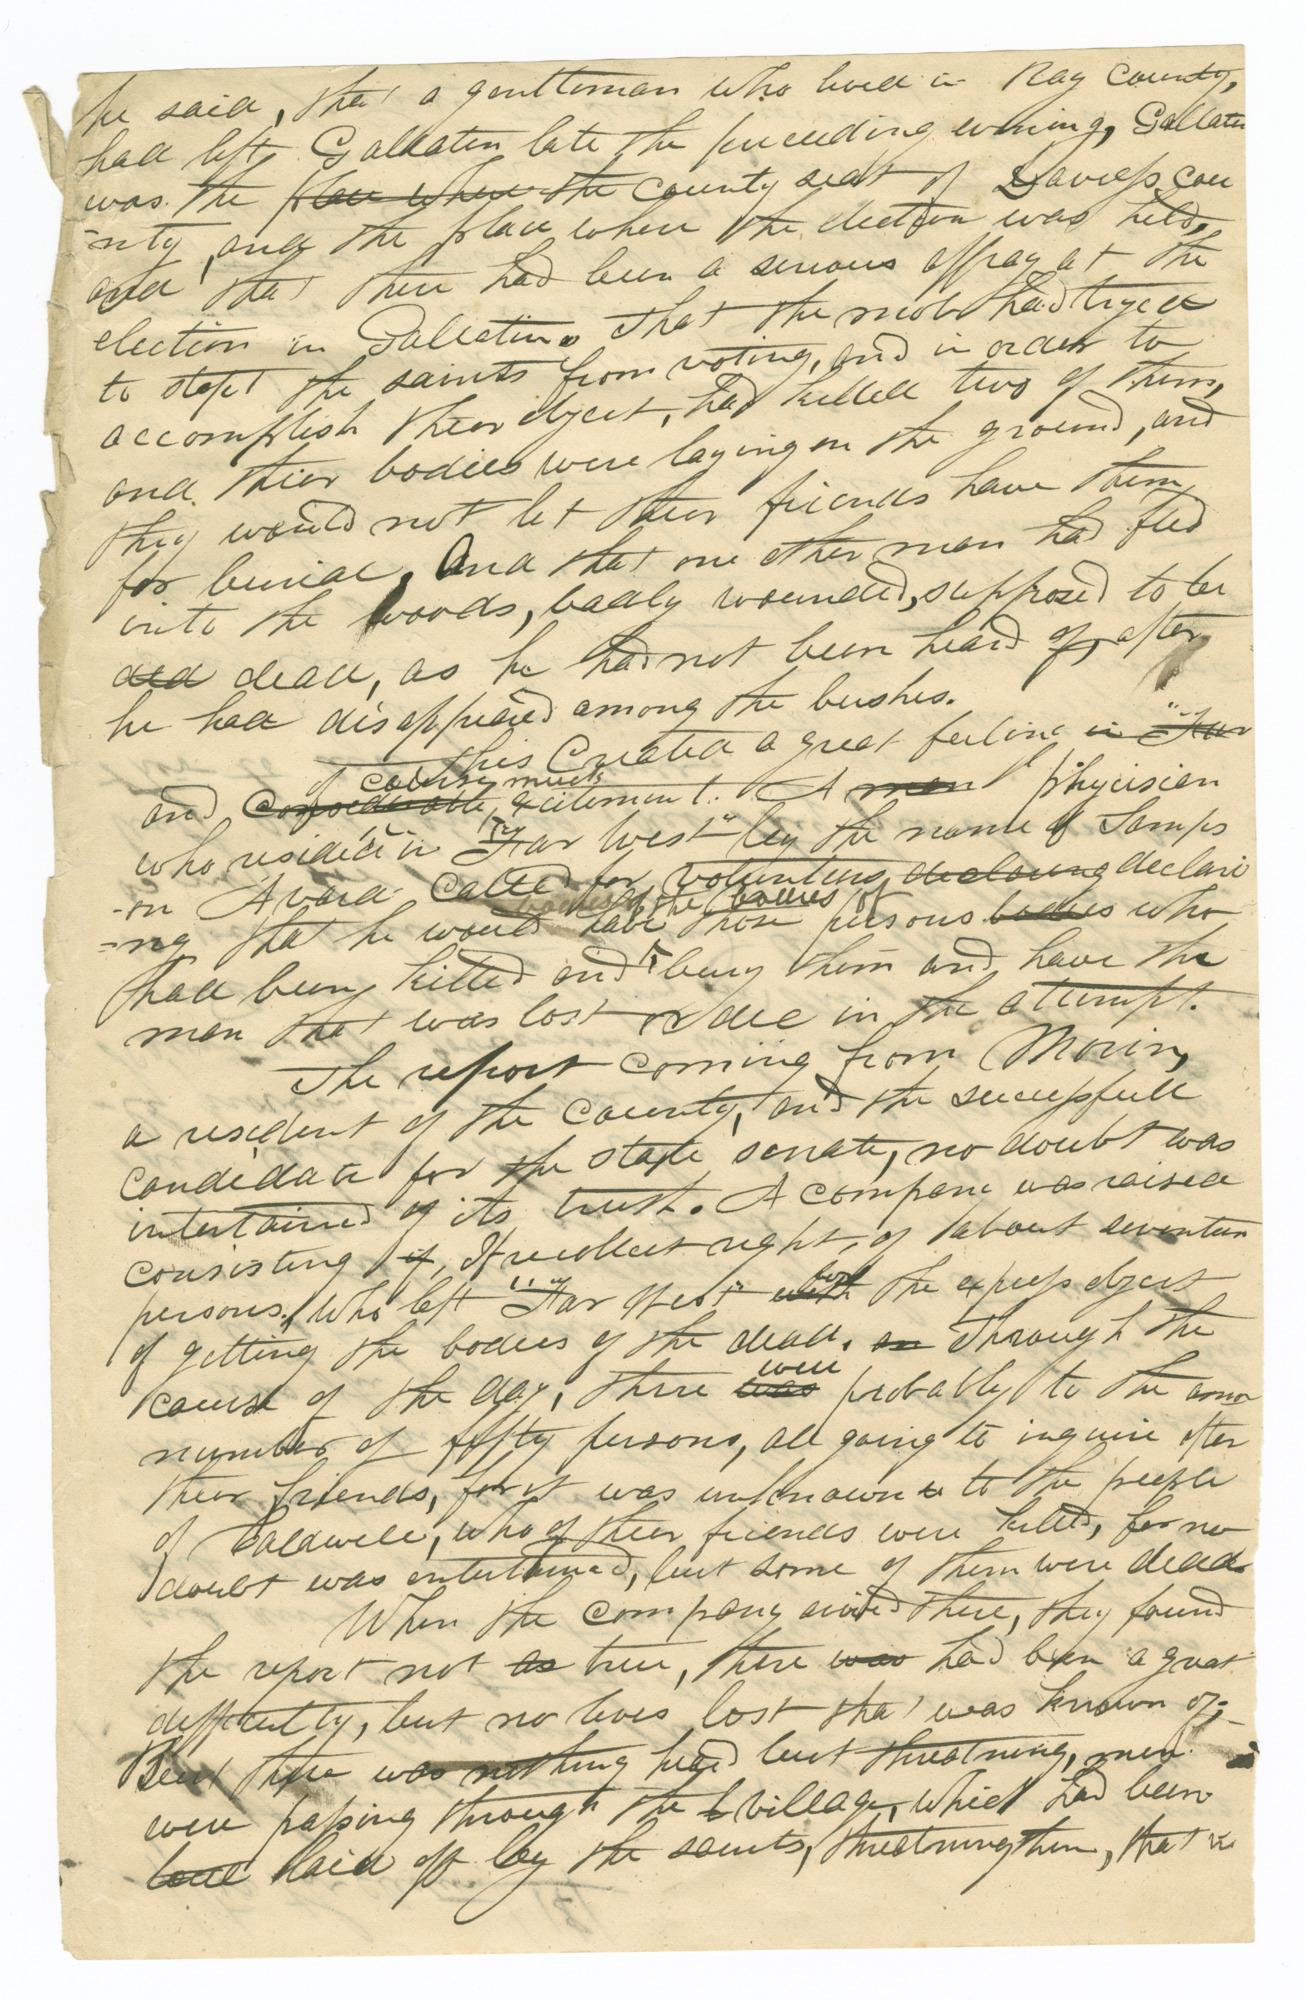 he said, that a gentleman who lived in Ray county,
had left Gallaten late the preceeding evening, Gallaten
was the place where the county seat of Daviess cou
-nty, and the place where the election was held,
and that there had been a serious affray at the
election in Gallatin. That the mob had tryed
to stop the saints from voting, and in order to
accomplish thier object, had killed two of them,
and thier bodies were laying on the ground, and
they would not let thier friends have them
for burial, And that one other man had fled
into the woods, badly wounded, supposed to be
ded dead, as he had not been heard of, after
he had disappeared among the bushes.
this Created a great feeling in "Far
of course much
and considerable, excitement. A man physician
who resided in "Far West" by the name of Samps
-on Avard called for volunteers declaring declari
bodies of the bodies of
-ng that he would have those persons bodies who
had been killed and bury them and have the
man that was lost or die in the atempt.
The report coming from Morin,
a resident of the county, and the successfull
candidate for the state senate, no doubt was
intertained of its trust. A company was raised
consisting if, If recollect right, of about seventeen
for
persons, who left "Far West" with the express object
of getting the bodies of the dead. an Through the
were
course of the day, there was probably to the
number of fifty persons, all going to inquire after
their friends, for it was unknown to the people
of Caldwell, who of their friends were killed, for no
doubt was entertained, but some of them were dead.
When the company arived there, they found
the report not as true, there was had been a great
difficulty, but no lives lost that was known of;
But there was nothing heard but threatning, men
were passing through the village, which had been
laid off by the saints, threatning them, that